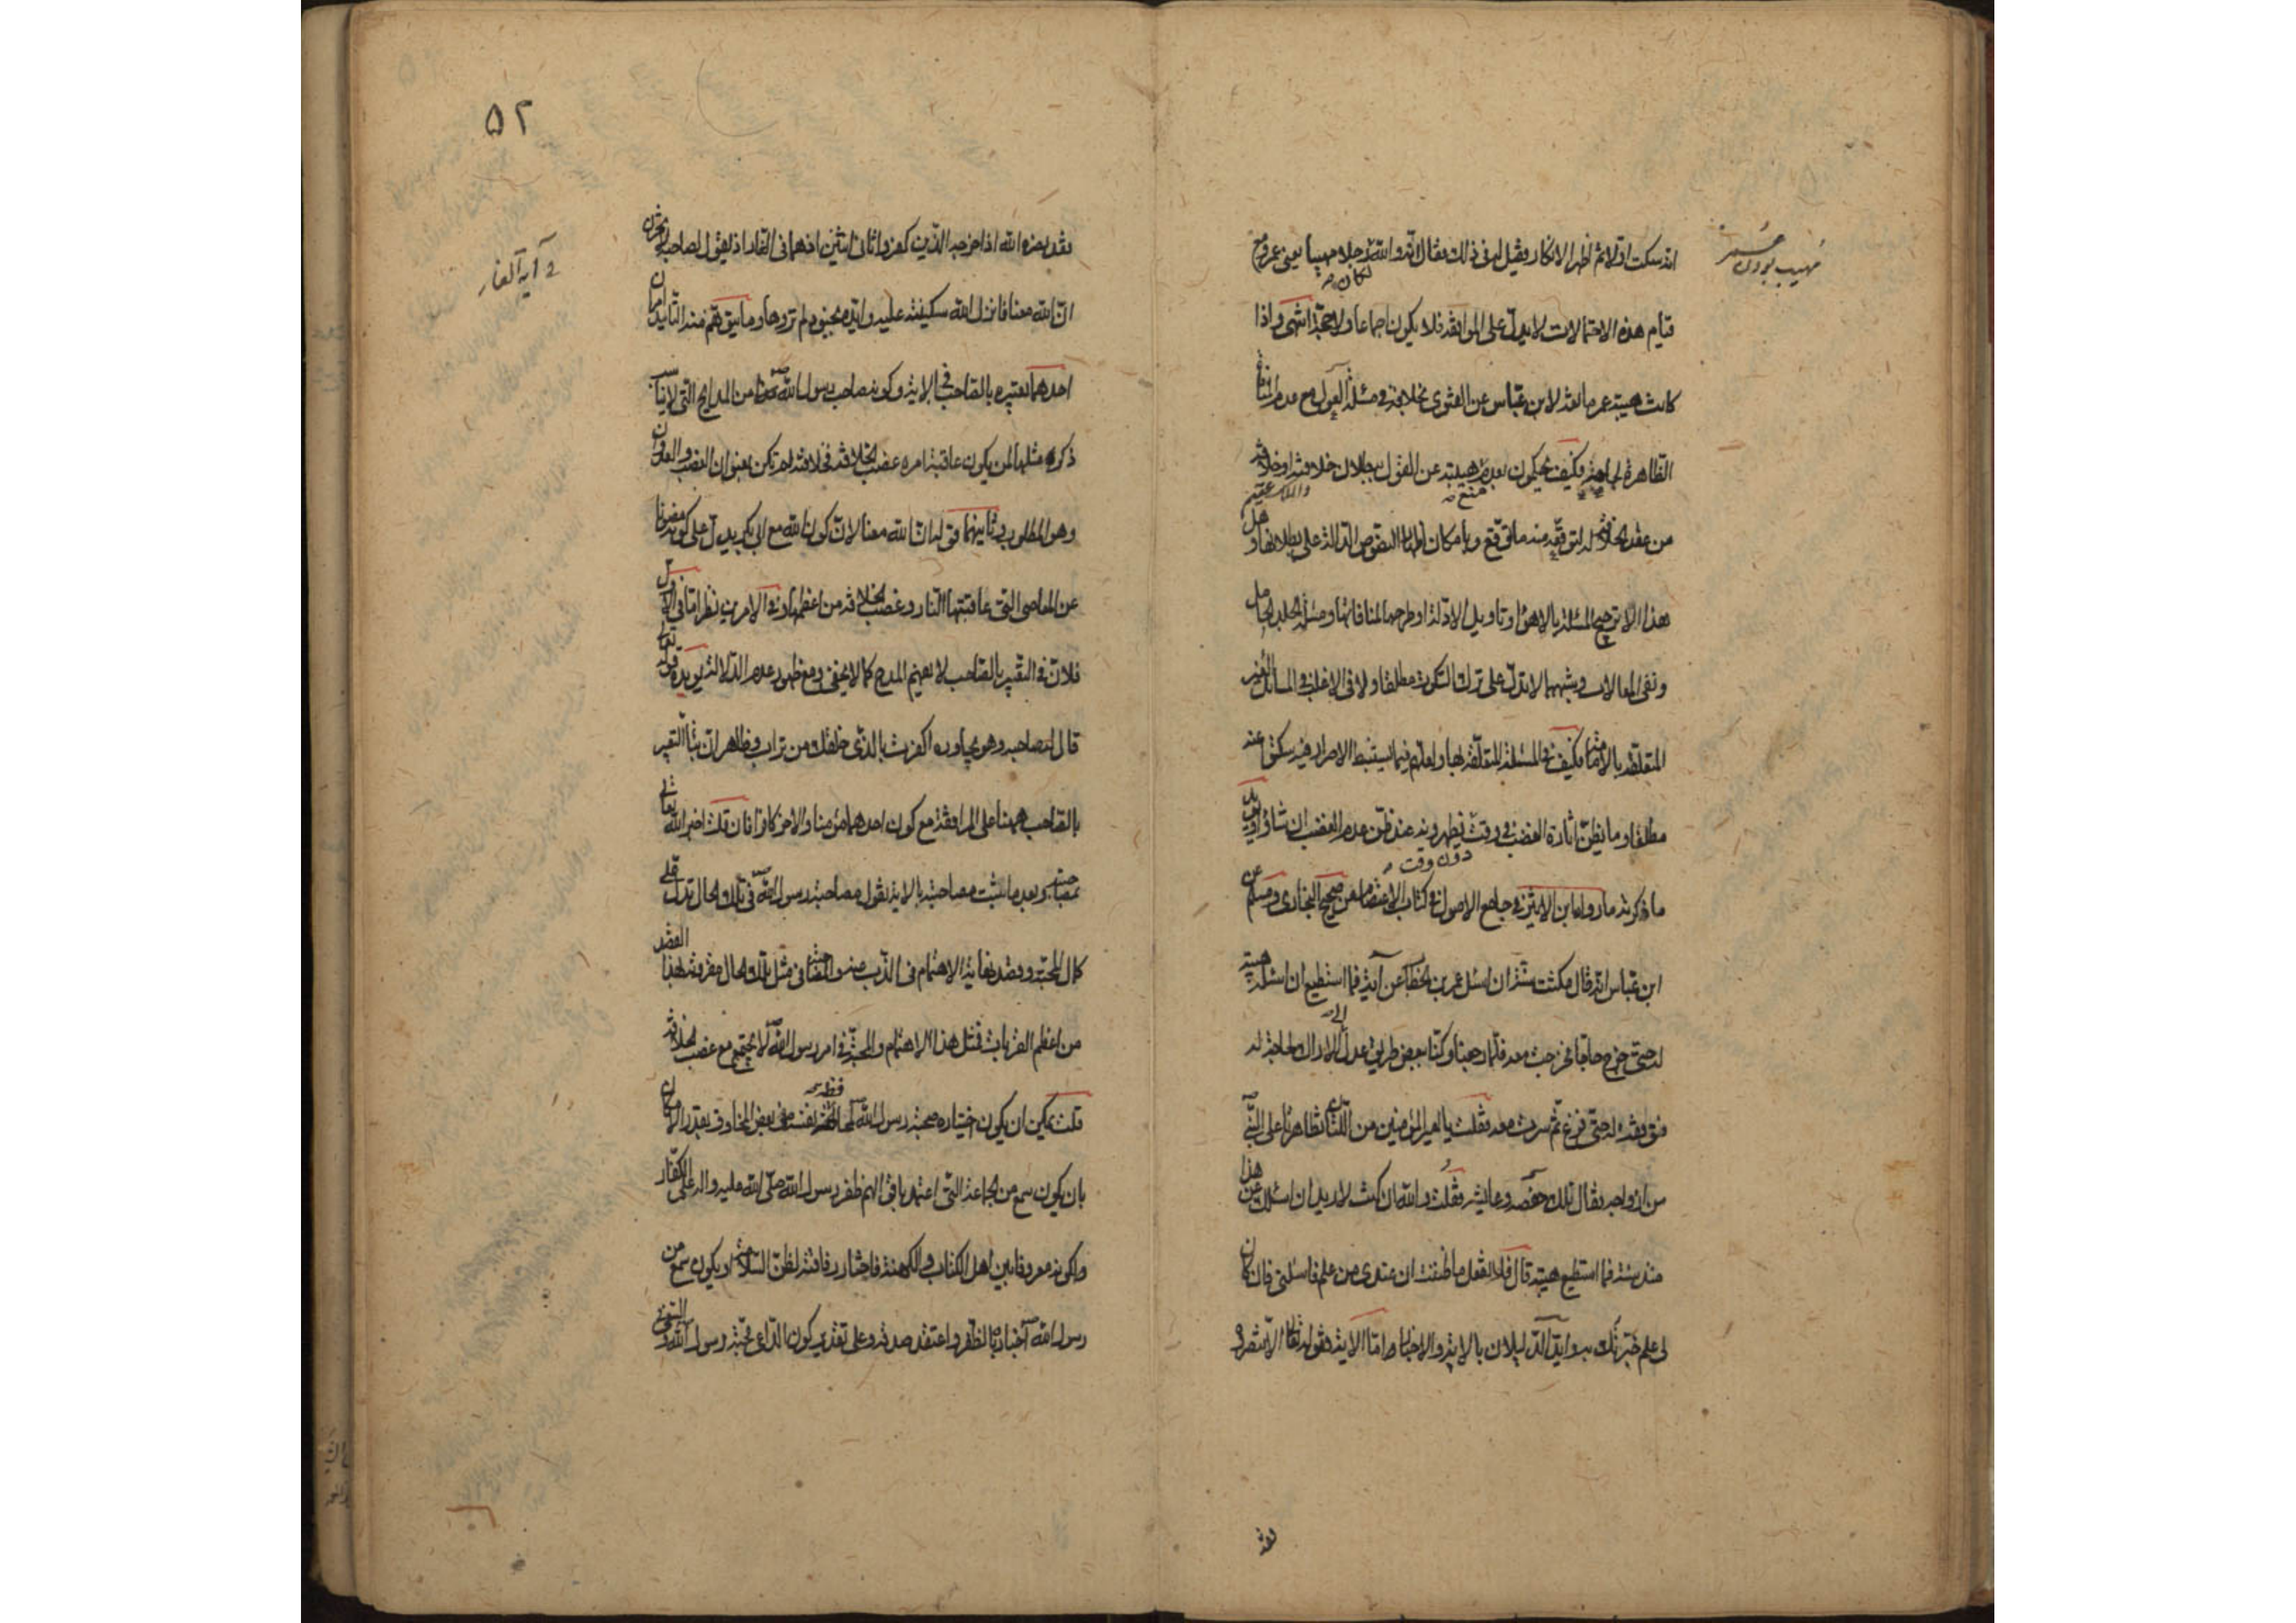 مهيب بودن عمر
انه سكت اولا ثم اظهر الانكار وقيل له في ذلك فقال انه والله لكان رجلا مهيبا يعني عمر ومع
قيام هذه الاحتمالات لا يدل على الموافقة فلا يكون اجماعا ولا حجة انتهى واذا
كانت هيبة عمر مانعة لابن عباس عن الفتوى بخلافه في مسئلة العول مع عدم
الظاهرة فكيف يحكمون بعدم منع هيبته عن القول ببطلان خلافته او خلافة
من عقد الخلافة له لتوقع منه ما وقع وبامكان النصوص الدالة على بطلانها وهل
هذا الا ترجيح المسئلة بالاهواء وتاويل الادلة او طرحها لمنافاتها ومسئلة الجلد الحامل
ونفي المغالات وشبههما لا تدل على ترك السكوت مطلقا ولا في الاغلب في المسائل الغير
المتعلقة بالامامة فكيف في المسئلة المتعلقة بها ولعله فيما يستنبط الاصرار فيه سكت عنه
مطلقا وما يظن اثارة الغضب في وقت دون وقت يظهره عند ظن عدم الغضب ان شاء ويؤيد
ما ذكرته ما رواه ابن الاثير في جامع الاصول في كتاب الاعتصام عن صحيح البخاري ومسلم عن
ابن عباس انه قال مكثت سنة ان اسئل عمر بن الخطاب عن آية فما استطيع ان اسئله هيبة
له حتى خرج حاجا فخرجت معه فلما رجعنا وكنا ببعض طريق عدل الى الاراك لحاجة له
فوقفت له حتى فرغ ثم سرت معه فقلت يا امير المؤمنين من اللتان تظاهرتا على النبي
من ازواجه فقال تلك حفصة وعايشة فقلت والله ان كنت لاريد ان اسئلك عن هذا
منذ سنة فما استطيع هيبة قال فلا تفعل ما ظننت ان عندي من علم فاسئلني فان كان
لي علم خبرتك به وايد الدليلان بالاية والاخبار اما الاية فقوله تعالى الا تنصروه
فقد
٥٢
آية الغار
فقد نصره الله اذ اخرجه الذين كفروا ثاني اثنين اذ هما في الغار اذ يقول لصاحبه لا تحزن
ان الله معنا فانزل الله سكينته عليه وايده بجنود لم تروها وما يتوهم منه التاييد امران
احدهما تعبيره بالصاحب في الاية وكونه صاحب رسول الله من المدايح التي لا يناسب
ذكر مثلها لمن يكون عاقبة امره غصب الخلافة فخلافته لم تكن بعنوان الغصب والعدوان
وهو المطلوب وثانيهما قوله ان الله معنا لان كون الله مع ابي بكر يدل على كونه محفوظا
عن المعاصي التي عاقبتها النار وغصب الخلافة من اعظمها وفي الامرين نظر اما في الاول
فلان في التعبير بالصاحب لا يفهم المدح كما لا يخفى ومع ظهور عدم الدلالة يؤيده قوله تعالى
قال له صاحبه وهو يحاوره اكفرت بالذي خلقك من تراب وظاهر ان بناء التعبير
بالصاحب ههنا على المرافقة مع كون احدهما مؤمنا والاخر كافرا فان قلت اخبر الله تعالى
بمصاحبته وبعد ما ثبت مصاحبته بالاية نقول مصاحبة رسول الله في تلك الحال تدل على
كمال المحبة وقصد نهاية الاهتمام في الذب عنه في مثل تلك الحال مقرونة بهذا القصد
من اعظم القربات فمثل هذا الاهتمام والمحبة في امر رسول الله لا يجتمع مع غصب الخلافة
قلت يمكن ان يكون اختياره صحبة رسول الله لحفظ نفسه في بعض المخاوف بقدر الامكان
بان يكون سمع من الجماعة التي اعتمد باقوالهم ظفر رسول الله صلى الله عليه واله على الكفار
ولكونه معروفا بين اهل الكتاب والكهنة فاختار رفاقته لظن السلامة او يكون سمع من
رسول الله اخباره بالظفر واعتقد صدقه وعلى تقدير كون الداعي محبة رسول الله